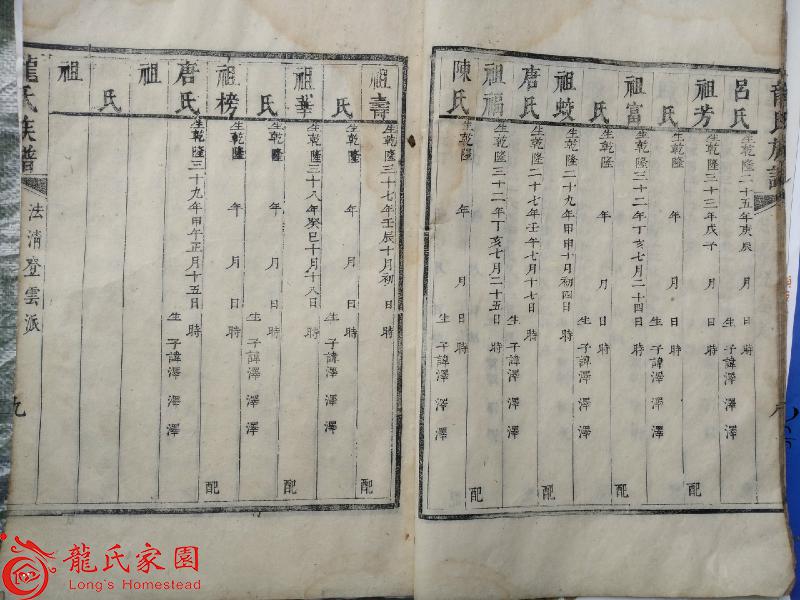 龍氏族譜
呂氏 生乾隆二十五年庚辰 月 日 時 生子諱澤 澤 澤
祖芳 生乾隆三十三年戊子 配
氏 生乾隆 年 月 日 時 生子諱澤 澤 澤
祖富 生乾隆三十二年丁亥七月二十四 時 配
氏 生乾隆 年 月 日 時 生子諱澤 澤 澤
祖蛟 生乾隆二十九年甲申十月初四日 時 配
唐氏 生乾隆二十七年壬午七月十七日 時 生子諱澤 澤 澤
祖福 生乾隆三十二年丁亥七月二十五日 時 配
陳氏 生乾隆 年 月 日 時 生子諱澤 澤 澤
祖壽 生乾隆三十七年壬辰十月初 日 時 配
氏 生乾隆 年 月 日 時 生子諱澤 澤 澤
祖華 生乾隆三十八年癸巳十月十八日 時 配
氏 生乾隆 年 月 日 時 生子諱澤 澤 澤
祖榜 生乾隆 年 月 日 時 配
唐氏 生乾隆三十九年甲午正月十五日 時 生子諱澤 澤 澤
祖
氏
祖
龍氏族譜 法清登雲派 九
龍氏家園
Long's Homestead